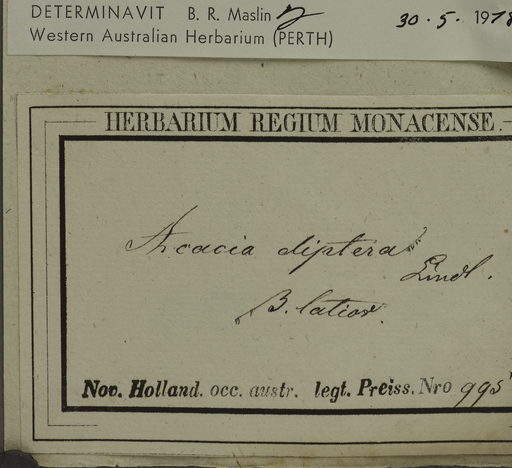 DETERMINAVIT B. R. Maslin 30.5.1978
Western Australian Herbarium (PERTH)
HERBARIUM REGIUM MONACENSE.
Acacia diptera
Lindl.
B. latior.
Nov. Holland. occ. austr. legt. Preiss. Nro 995